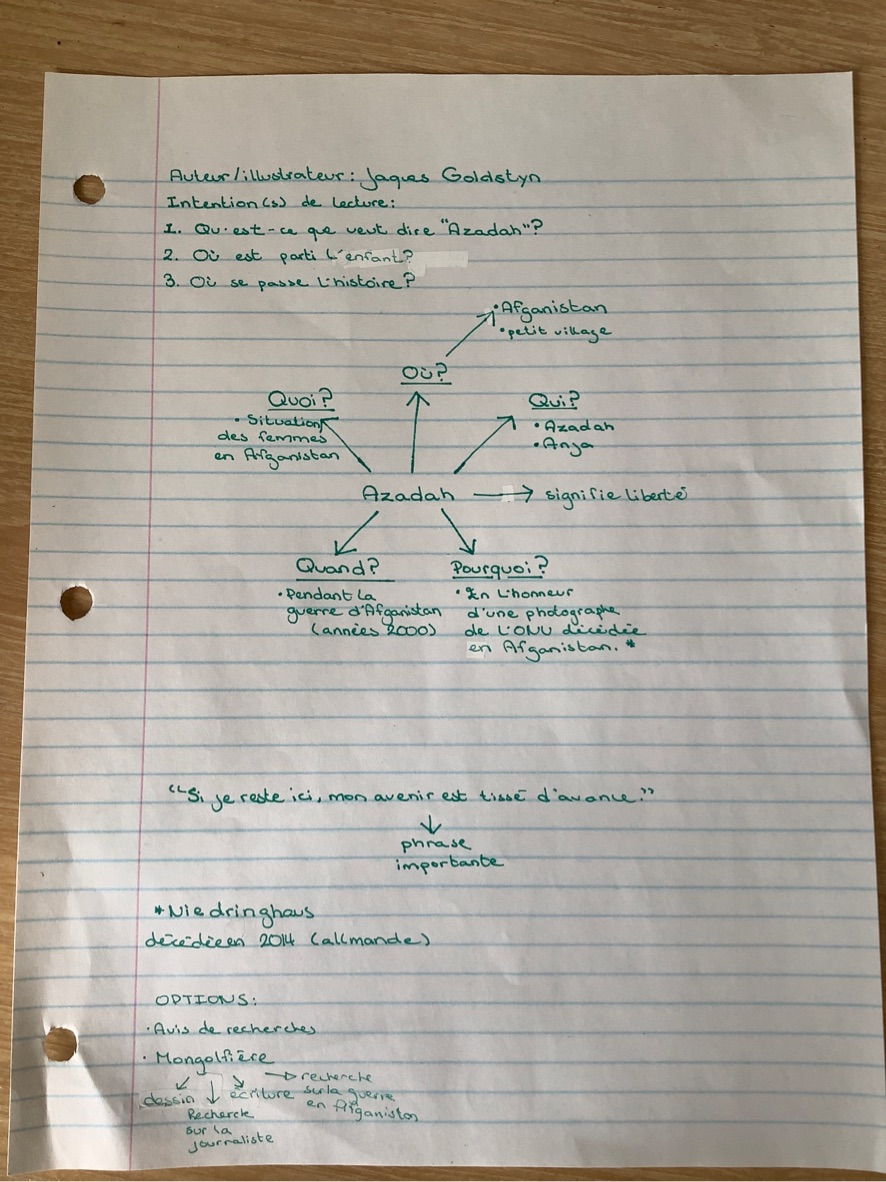 Auteur/illustrateur: Jaques Goldstyn
Intention(s) de lecture:
1. Qu'est-ce que veut dire "Azadah"?
2. Où est parti l'enfant?
3. Où se passe l'histoire?
• Afganistan
• petit village
Où?
Quoi?
• Situation
des femmes
en Afganistan
Qui?
• Azadah
• Anja
Azadah → signifie liberté
Quand?
• Pendant la
guerre d'Afganistan
(années 2000)
Pourquoi?
• En l'honneur
d'une photographe
de l'ONU décédée
en Afganistan. *
"Si je reste ici, mon avenir est tissé d'avance."
↓
phrase
importante
* Niedringhaus
décédée en 2014 (allmande)
OPTIONS:
• Avis de recherches
• Mongolfière
dessin
Recherche
sur la
journaliste
écriture
→ recherche
sur la guerre
en Afganistan